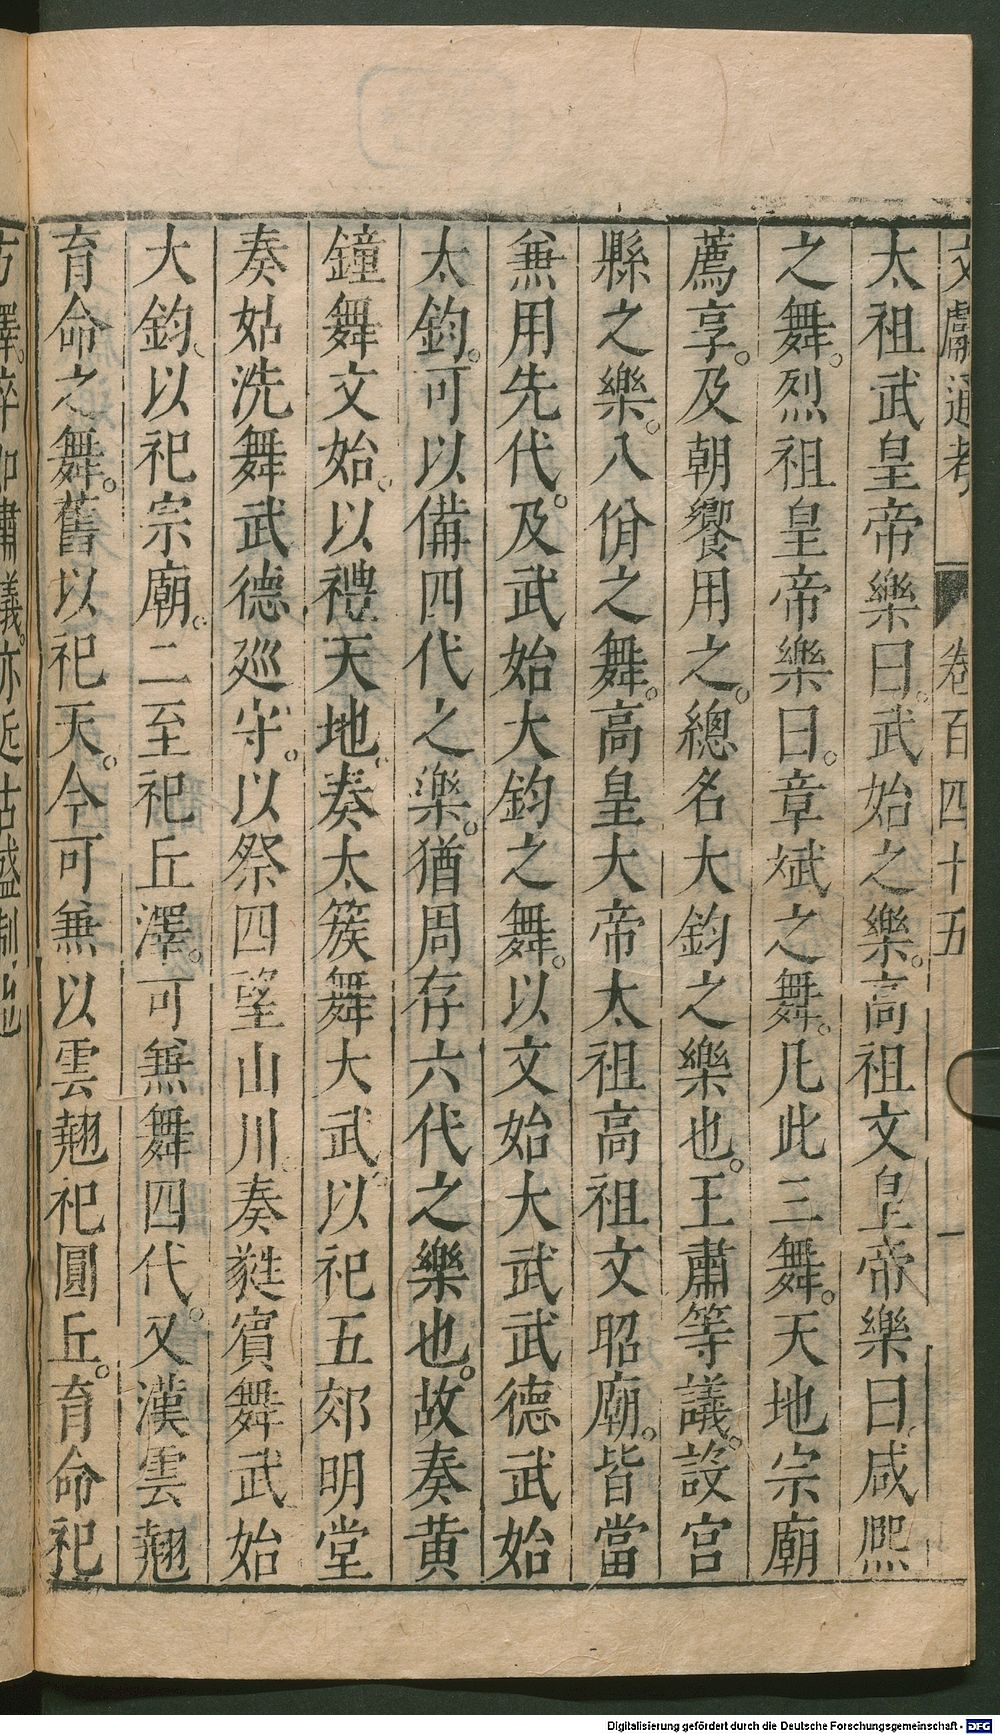 文獻通考 卷百四十五 一
太祖武皇帝樂曰武始之樂高祖文皇帝樂曰咸熙
之舞烈祖皇帝樂曰章斌之舞凡此三舞天地宗廟
薦享及朝饗用之總名大鈞之樂也王肅等議設宮
縣之樂八佾之舞高皇大帝太祖高祖文昭廟皆當
兼用先代及武始大鈞之舞以文始大武武德武始
太鈞可以備四代之樂猶周存六代之樂也故奏黄
鐘舞文始以禮天地奏太簇舞大武以祀五郊明堂
奏姑洗舞武德巡守以祭四望山川奏蕤賓舞武始
大鈞以祀宗廟二至祀丘澤可兼舞四代又漢雲翹
育命之舞舊以祀天今可兼以雲翹祀圓丘育命祀
方澤
肅議亦近古盛制也
Digitalisierung gefördert durch die Deutsche Forschungsgemeinschaft - DFG